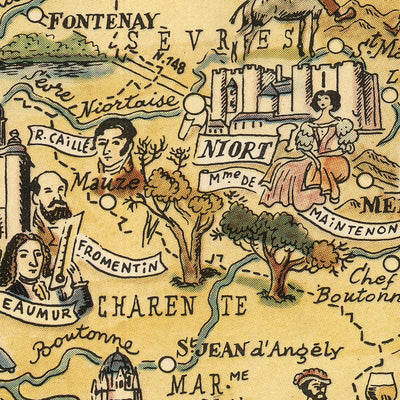 FONTENAY
SÈVRES
N.148
Sèvre Niortaise
R. CAILLÉ
NIORT
Mme DE
MAINTENON
Mauzé
FROMENTIN
EAUMUR
CHARENTE
Chef
Boutonn
Boutonne
St JEAN d'Angély
MAR.ME